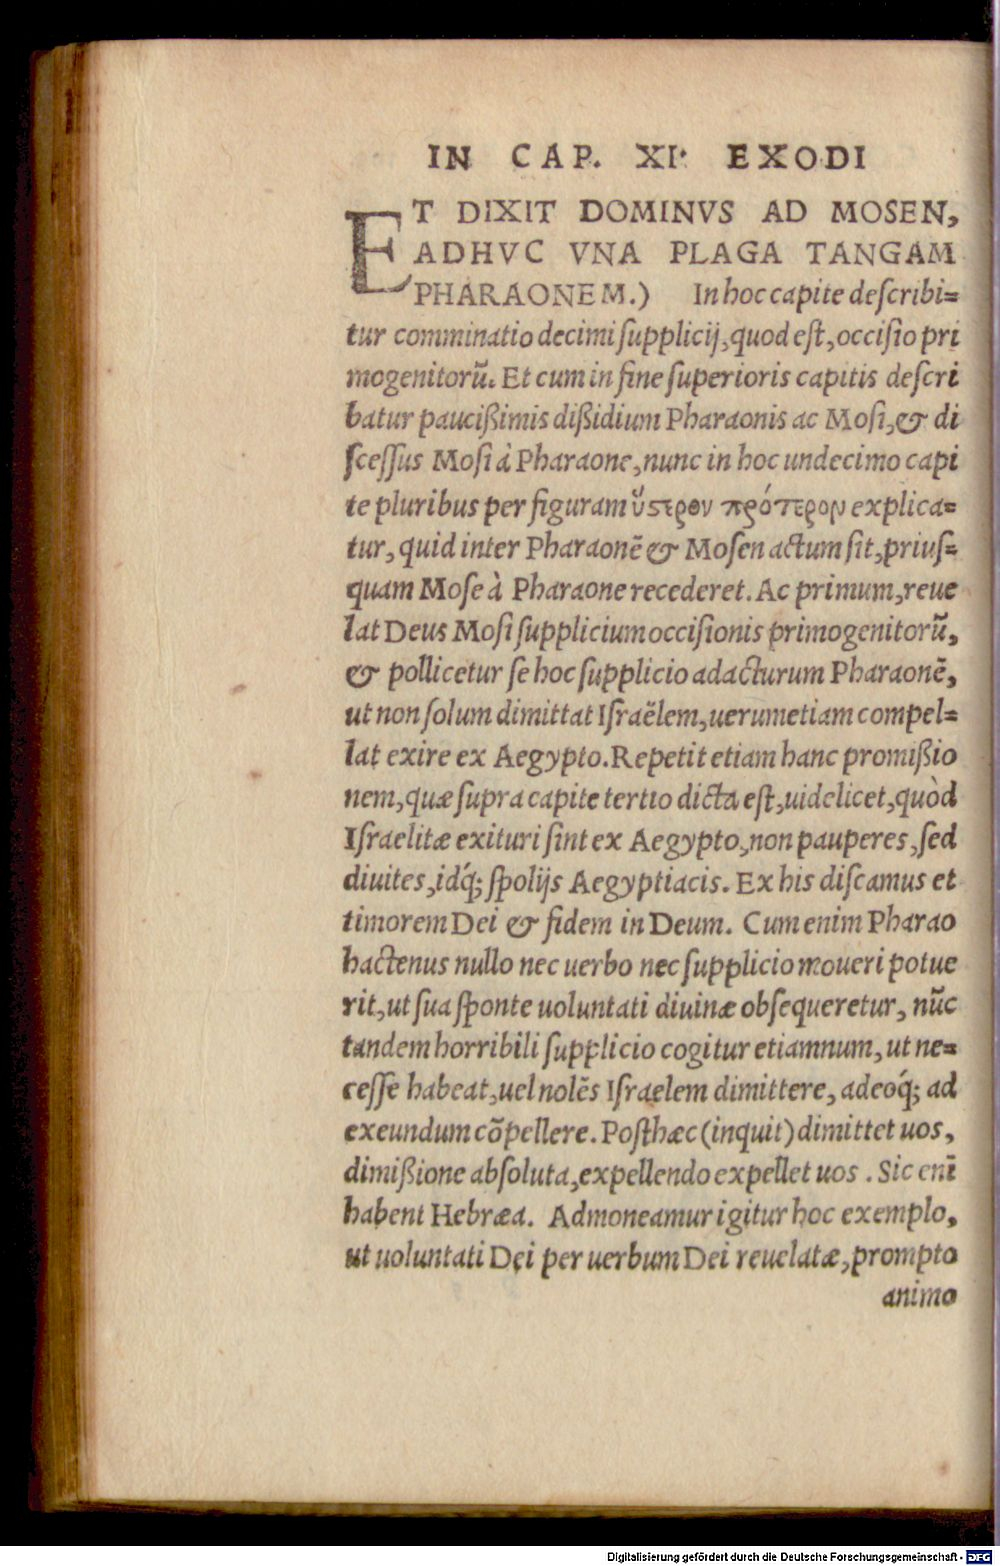 IN CAP. XI. EXODI
ET DIXIT DOMINVS AD MOSEN,
ADHVC VNA PLAGA TANGAM
PHARAONEM.) In hoc capite deſcribi=
tur comminatio decimi ſupplicij, quod eſt, occiſio pri
mogenitorũ. Et cum in fine ſuperioris capitis deſcri
batur paucißimis dißidium Pharaonis ac Moſi, & di
ſceſſus Moſi à Pharaone, nunc in hoc undecimo capi
te pluribus per figuram ὕστερον πρότερον explica=
tur, quid inter Pharaonẽ & Moſen actum ſit, priuſ=
quam Moſe à Pharaone recederet. Ac primum, reue
lat Deus Moſi ſupplicium occiſionis primogenitorũ,
& pollicetur ſe hoc ſupplicio adacturum Pharaonẽ,
ut non ſolum dimittat Iſraëlem, uerumetiam compel=
lat exire ex Aegypto. Repetit etiam hanc promißio
nem, quæ ſupra capite tertio dicta eſt, uidelicet, quòd
Iſraelitæ exituri ſint ex Aegypto, non pauperes, ſed
diuites, idq́; ſpolijs Aegyptiacis. Ex his diſcamus et
timorem Dei & fidem in Deum. Cum enim Pharao
hactenus nullo nec uerbo nec ſupplicio moueri potue
rit, ut ſua ſponte uoluntati diuinæ obſequeretur, nũc
tandem horribili ſupplicio cogitur etiamnum, ut ne=
ceſſe habeat, uel nolẽs Iſraelem dimittere, adeoq́; ad
exeundum cõpellere. Poſthæc (inquit) dimittet uos,
dimißione abſoluta, expellendo expellet uos. Sic enĩ
habent Hebræa. Admoneamur igitur hoc exemplo,
ut uoluntati Dei per uerbum Dei reuelatæ, prompto
animo
Digitalisierung gefördert durch die Deutsche Forschungsgemeinschaft - DFG